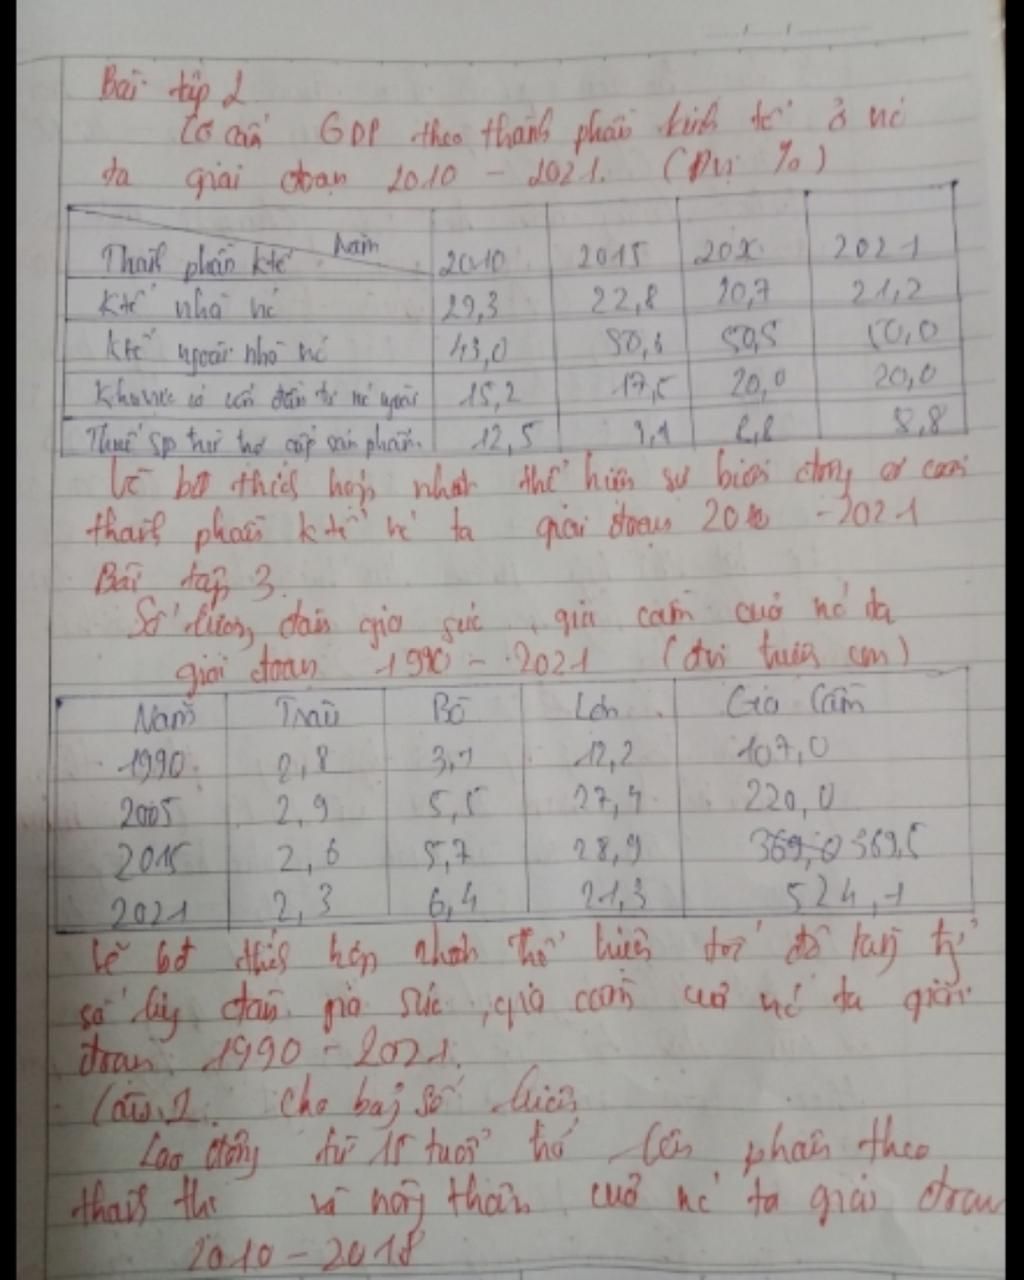 Bài tập 2
Cơ cấu GDP theo thành phần kinh tế ở nc
ta giai đoạn 2010 - 2021. (Đvị %)
Năm
Thành phần ktế 2010 2015 20 2021
Ktế nhà nc 29,3 22,8 20,7 21,2
Ktế ngoài nhà nc 43,0 50, 50,5 50,0
Khu vực có vốn đầu tư nc ngoài 15,2 17,5 20,0 20,0
Thuế sp trừ trợ cấp sản phẩm. 12,5 9,1 8,8 8,8
Vẽ bđ thích hợp nhất thể hiện sự biến động cơ cấu
thành phần ktế nc ta giai đoạn 2010 - 2021
Bài tập 3.
Số lượng đàn gia súc, gia cầm của nc ta
giai đoạn 1990 - 2021 (đvi triệu con)
Năm Trâu Bò Lợn Gia Cầm
1990 2,8 3,1 12,2 107,0
2005 2,9 5,5 27,4 220,0
2015 2,6 5,7 28,9 369,0 369,5
2021 2,3 6,4 21,3 524,1
Vẽ bđ thích hợp nhất thể hiện tốc độ tăng
số lg đàn gia súc, gia cầm của nc ta giai
đoạn 1990 - 2021.
Câu 2. Cho bảg số liệu
Lao động từ 15 tuổi trở lên phân theo
thành thị và nông thôn của nc ta giai đoạn
2010 - 2018